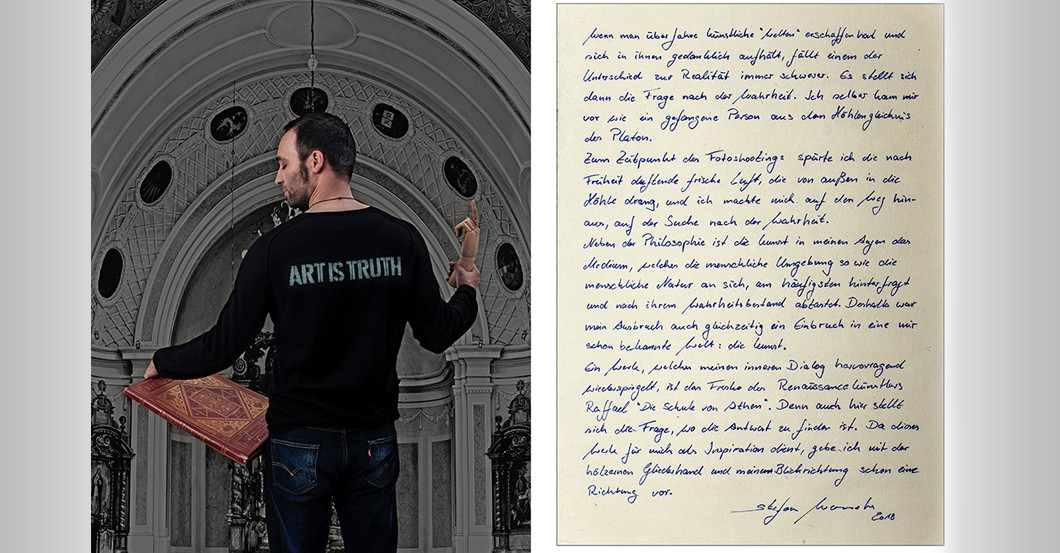 ART IS TRUTH
Wenn man über Jahre künstliche "Welten" erschaffen hat und
sich in ihnen gedanklich aufhält, fällt einem der
Unterschied zur Realität immer schwerer. Es stellt sich
dann die Frage nach der Wahrheit. Ich selber kam mir
vor wie ein gefangene Person aus dem Höhlengleichnis
des Platon.
Zum Zeitpunkt des Fotoshootings spürte ich die nach
Freiheit duftende frische Luft, die von außen in die
Höhle drang, und ich machte mich auf den Weg hin-
aus, auf der Suche nach der Wahrheit.
Neben der Philosophie ist die Kunst in meinen Augen das
Medium, welches die menschliche Umgebung so wie die
menschliche Natur an sich, am häufigsten hinterfragt
und nach ihrem Wahrheitsbestand abtastet. Deshalb war
mein Ausbruch auch gleichzeitig ein Einbruch in eine mir
schon bekannte Welt: die Kunst.
Ein Werk, welches meinen inneren Dialog hervorragend
wiederspiegelt, ist das Fresko des Renaissancekünstlers
Raffael "Die Schule von Athen". Denn auch hier stellt
sich die Frage, wo die Antwort zu finden ist. Da dieses
Werk für mich als Inspiration dient, gebe ich mit der
hölzernen Gliederhand und meinem Blickrichtung schon eine
Richtung vor.
Stefan
2018